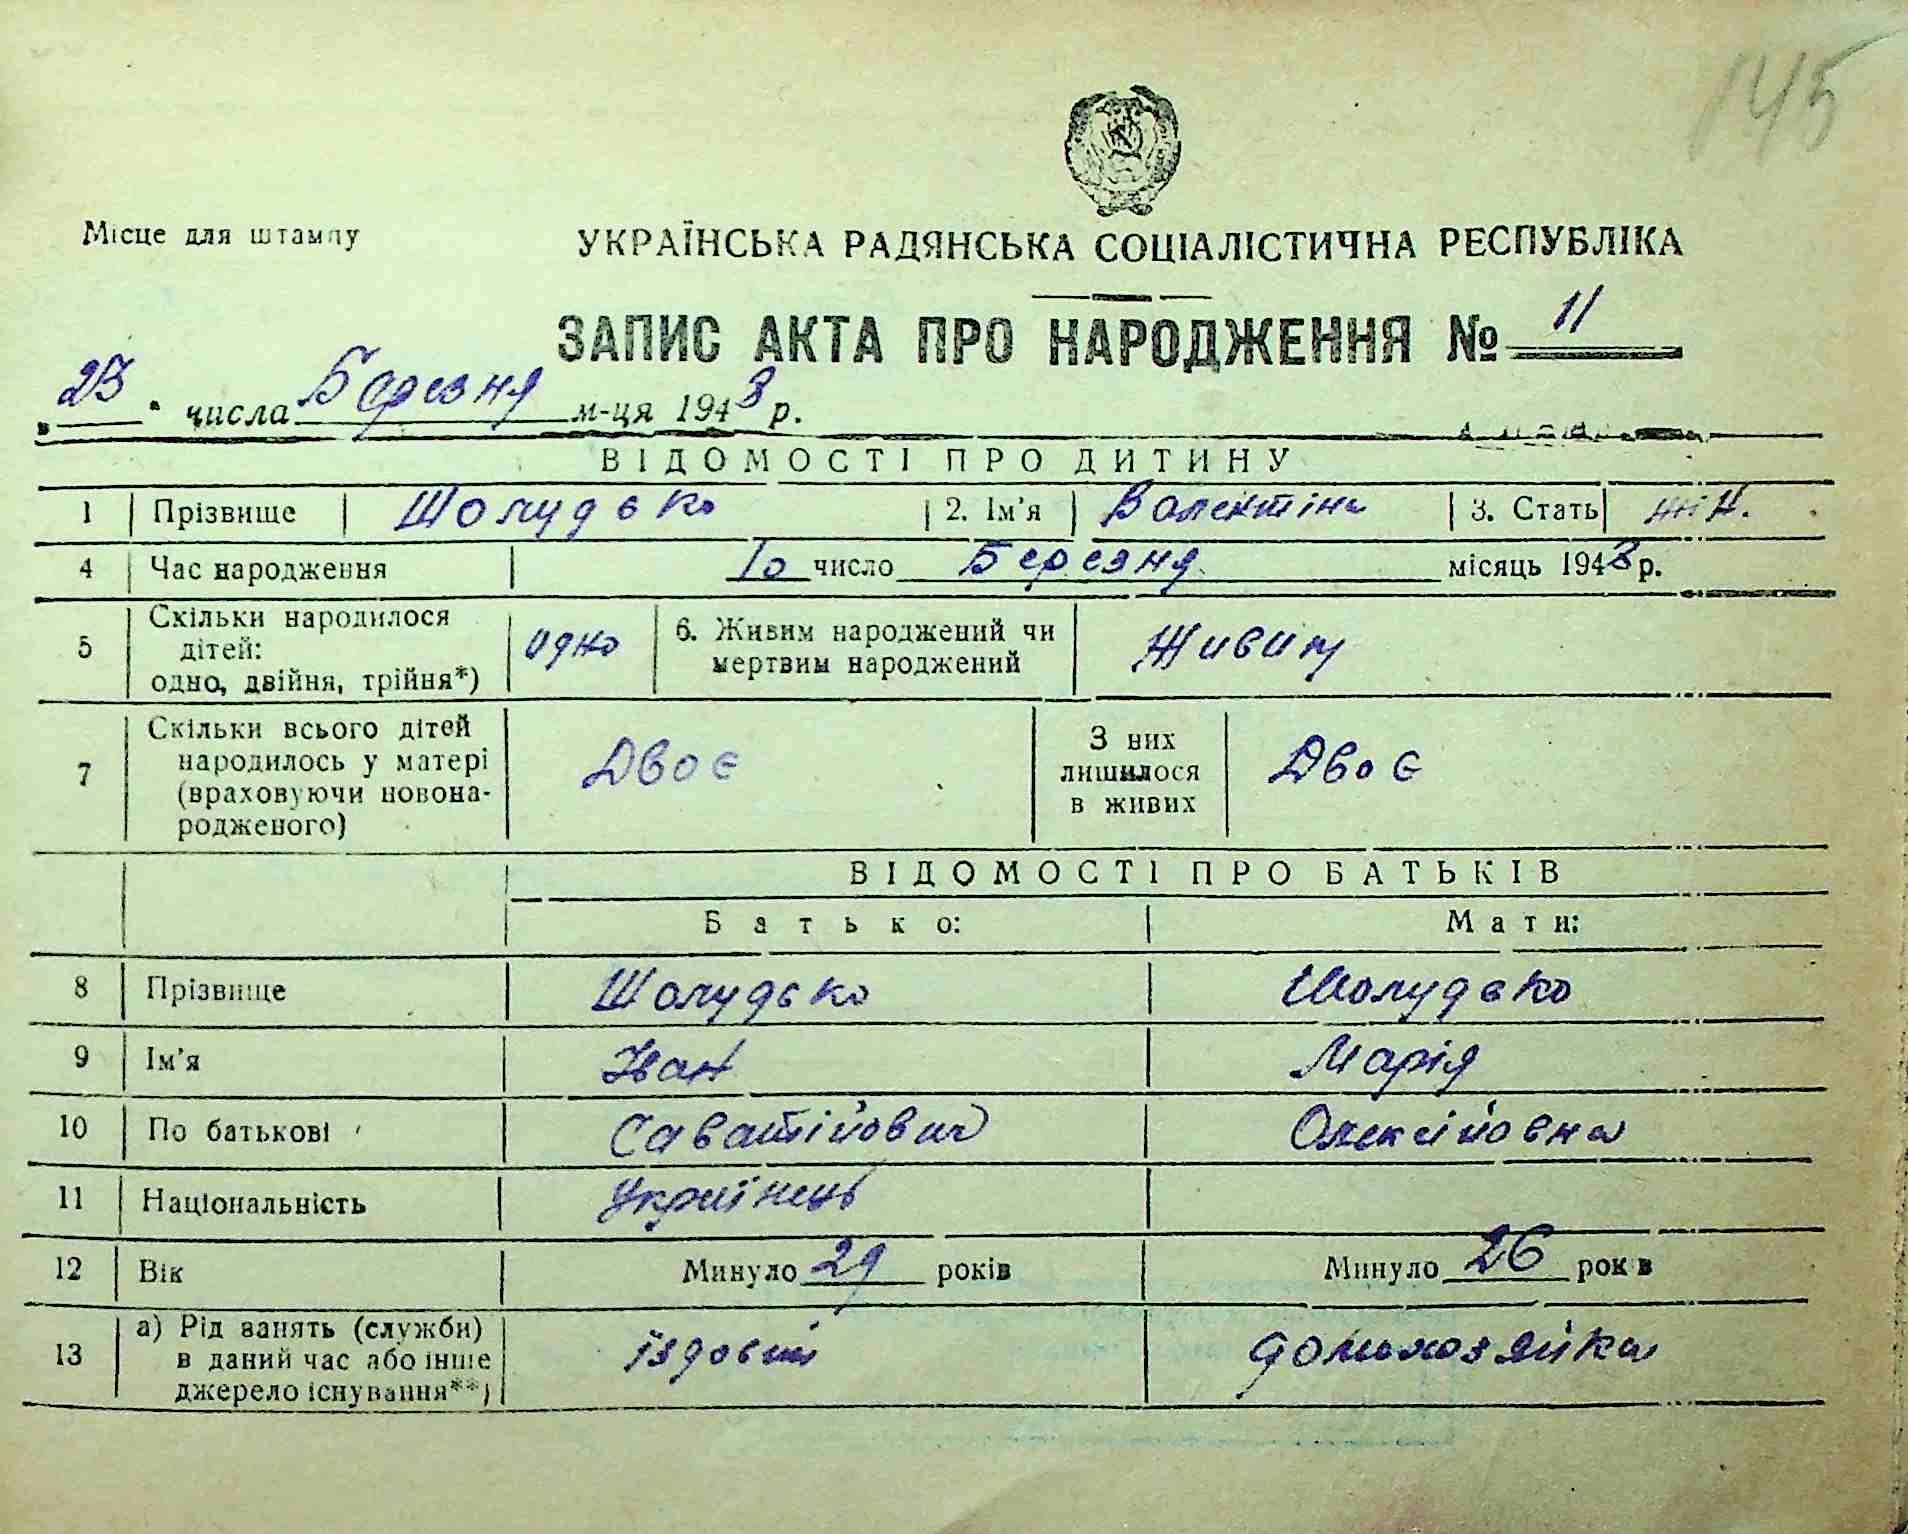 145
Місце для штампу
УКРАЇНСЬКА РАДЯНСЬКА СОЦІАЛІСТИЧНА РЕСПУБЛІКА
ЗАПИС АКТА ПРО НАРОДЖЕННЯ № 11
„23" числа Березня м-ця 1948 р.
ВІДОМОСТІ ПРО ДИТИНУ
1 Прізвище Шолудько 2. Ім'я Валентіна 3. Стать жін.
4 Час народження 10 число Березня місяць 1948 р.
5 Скільки народилося дітей: одно, двійня, трійня*) одно 6. Живим народжений чи мертвим народжений Живим
7 Скільки всього дітей народилось у матері (враховуючи новонародженого) Двоє З них лишилося в живих Двоє
ВІДОМОСТІ ПРО БАТЬКІВ
Батько: Мати:
8 Прізвище Шолудько Шолудько
9 Ім'я Іван Марія
10 По батькові Саватійович Олексійовна
11 Національність Українець
12 Вік Минуло 29 років Минуло 26 років
13 а) Рід занять (служби) в даний час або інше джерело існування**) їздовий домохозяйка